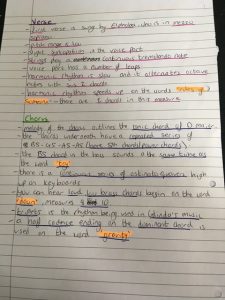 Verse
- first verse is sung by Elphaba, who is in mezzo
soprano
- pitch range is low
- slight syncopation in the voice part
- strings play a continuous tremolando note
- voice part has a number of leaps
- harmonic rhythm is slow and it alternates octave
notes with sus chords
- harmonic rhythm speeds up on the words
- there are chords in this measure
Chorus
- melody of the chorus outlines the tonic chord of D major
- the chords underneath have a repeated series of
(bare 5th chords/power chords)
- the chord in the bass sounds at the same time as
the word
- there is a series of ostinato quavers high
up on keyboards
- you can hear loud low brass chords begin on the word
"down", measure 10
- is the rhythm being used in Glinda's music
- a half cadence ending on the dominant chord is
used on the word "gravity"